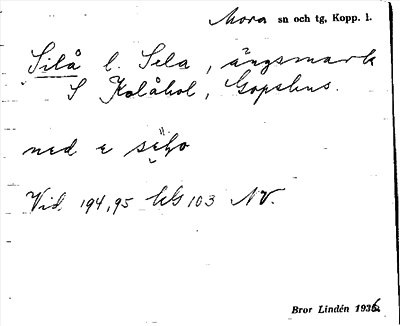 Mora sn och tg, Kopp. l.
Silå l. Sela, ängsmark
S Kolåhol, Gopshus.
ned e
Vid. 194,95 LG 103 NV.
Bror Lindén 1936